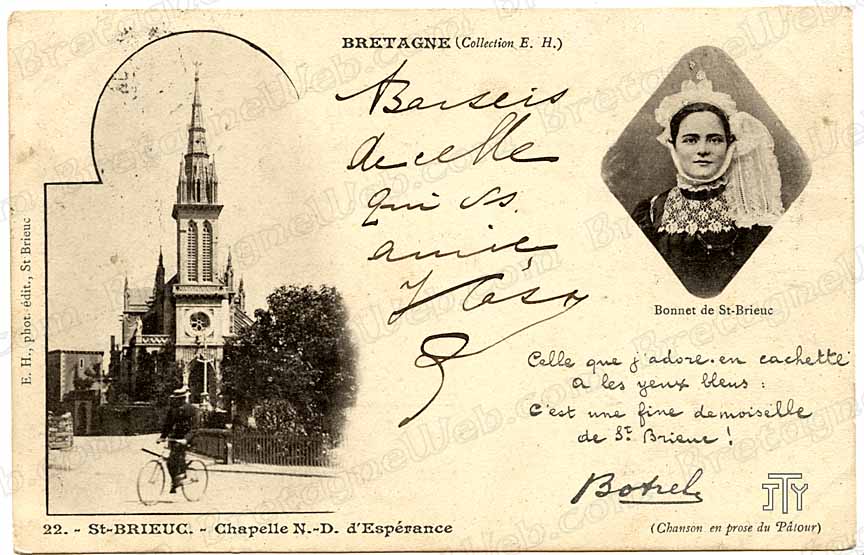 BRETAGNE (Collection E. H.)
Barseis
de celle
qui vs
amie
E. H., phot. édit., St Brieuc
Bonnet de St-Brieuc
Celle que j'adore en cachette
a les yeux bleus :
C'est une fine demoiselle
de St Brieuc !
Botrel
JTY
22. - St-BRIEUC. - Chapelle N.-D. d'Espérance
(Chanson en prose du Pâtour)
BretagneWeb.com